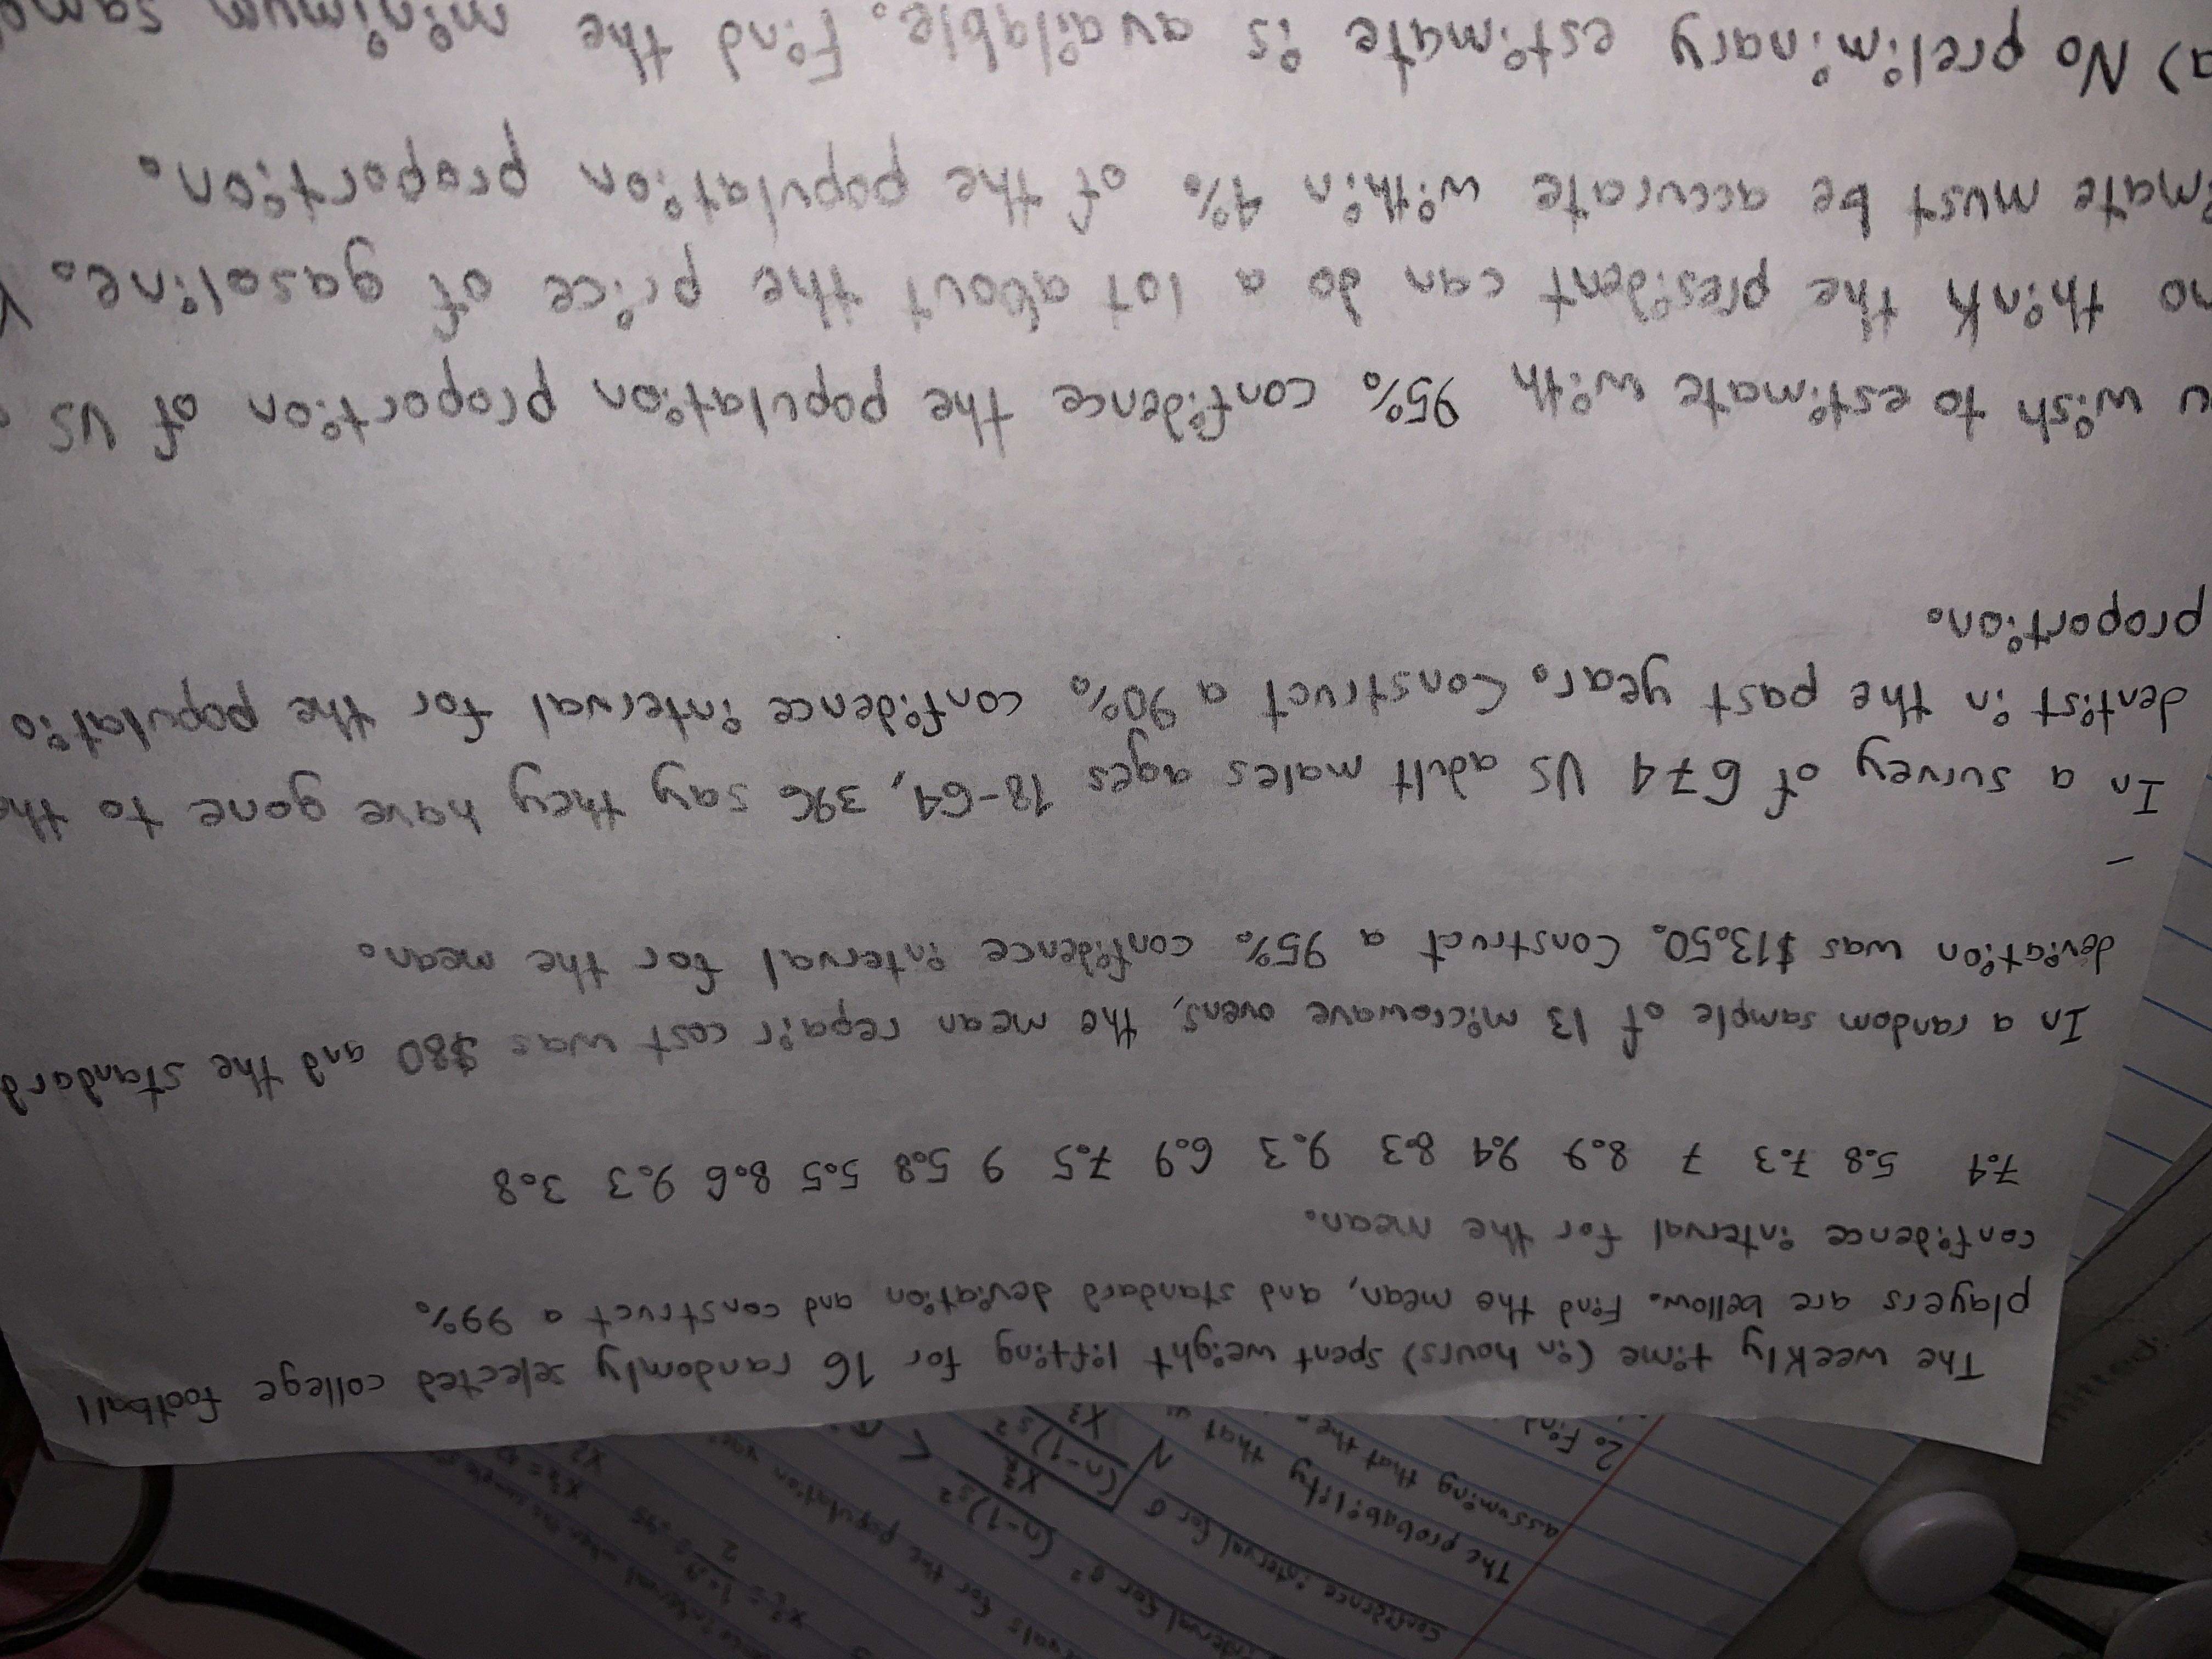 interval for σ²
(n-1)s²
confidence interval for σ
(n-1)s²
The probability that
assuming that the
2. Find
The weekly time (in hours) spent weight lifting for 16 randomly selected college football
players are bellow. Find the mean, and standard deviation and construct a 99%
confidence interval for the mean.
7.4 5.8 7.3 7 8.9 9.4 8.3 9.3 6.9 7.5 9 5.8 5.5 8.6 9.3 3.8
In a random sample of 13 microwave ovens, the mean repair cost was $80 and the standard
deviation was $13.50. Construct a 95% confidence interval for the mean.
In a survey of 674 US adult males ages 18-64, 396 say they have gone to the
dentist in the past year. Construct a 90% confidence interval for the populatio
proportion.
u wish to estimate with 95% confidence the population proportion of US
ho think the president can do a lot about the price of gasoline. Y
imate must be accurate within 4% of the population proportion.
a) No preliminary estimate is available. Find the minimum samp